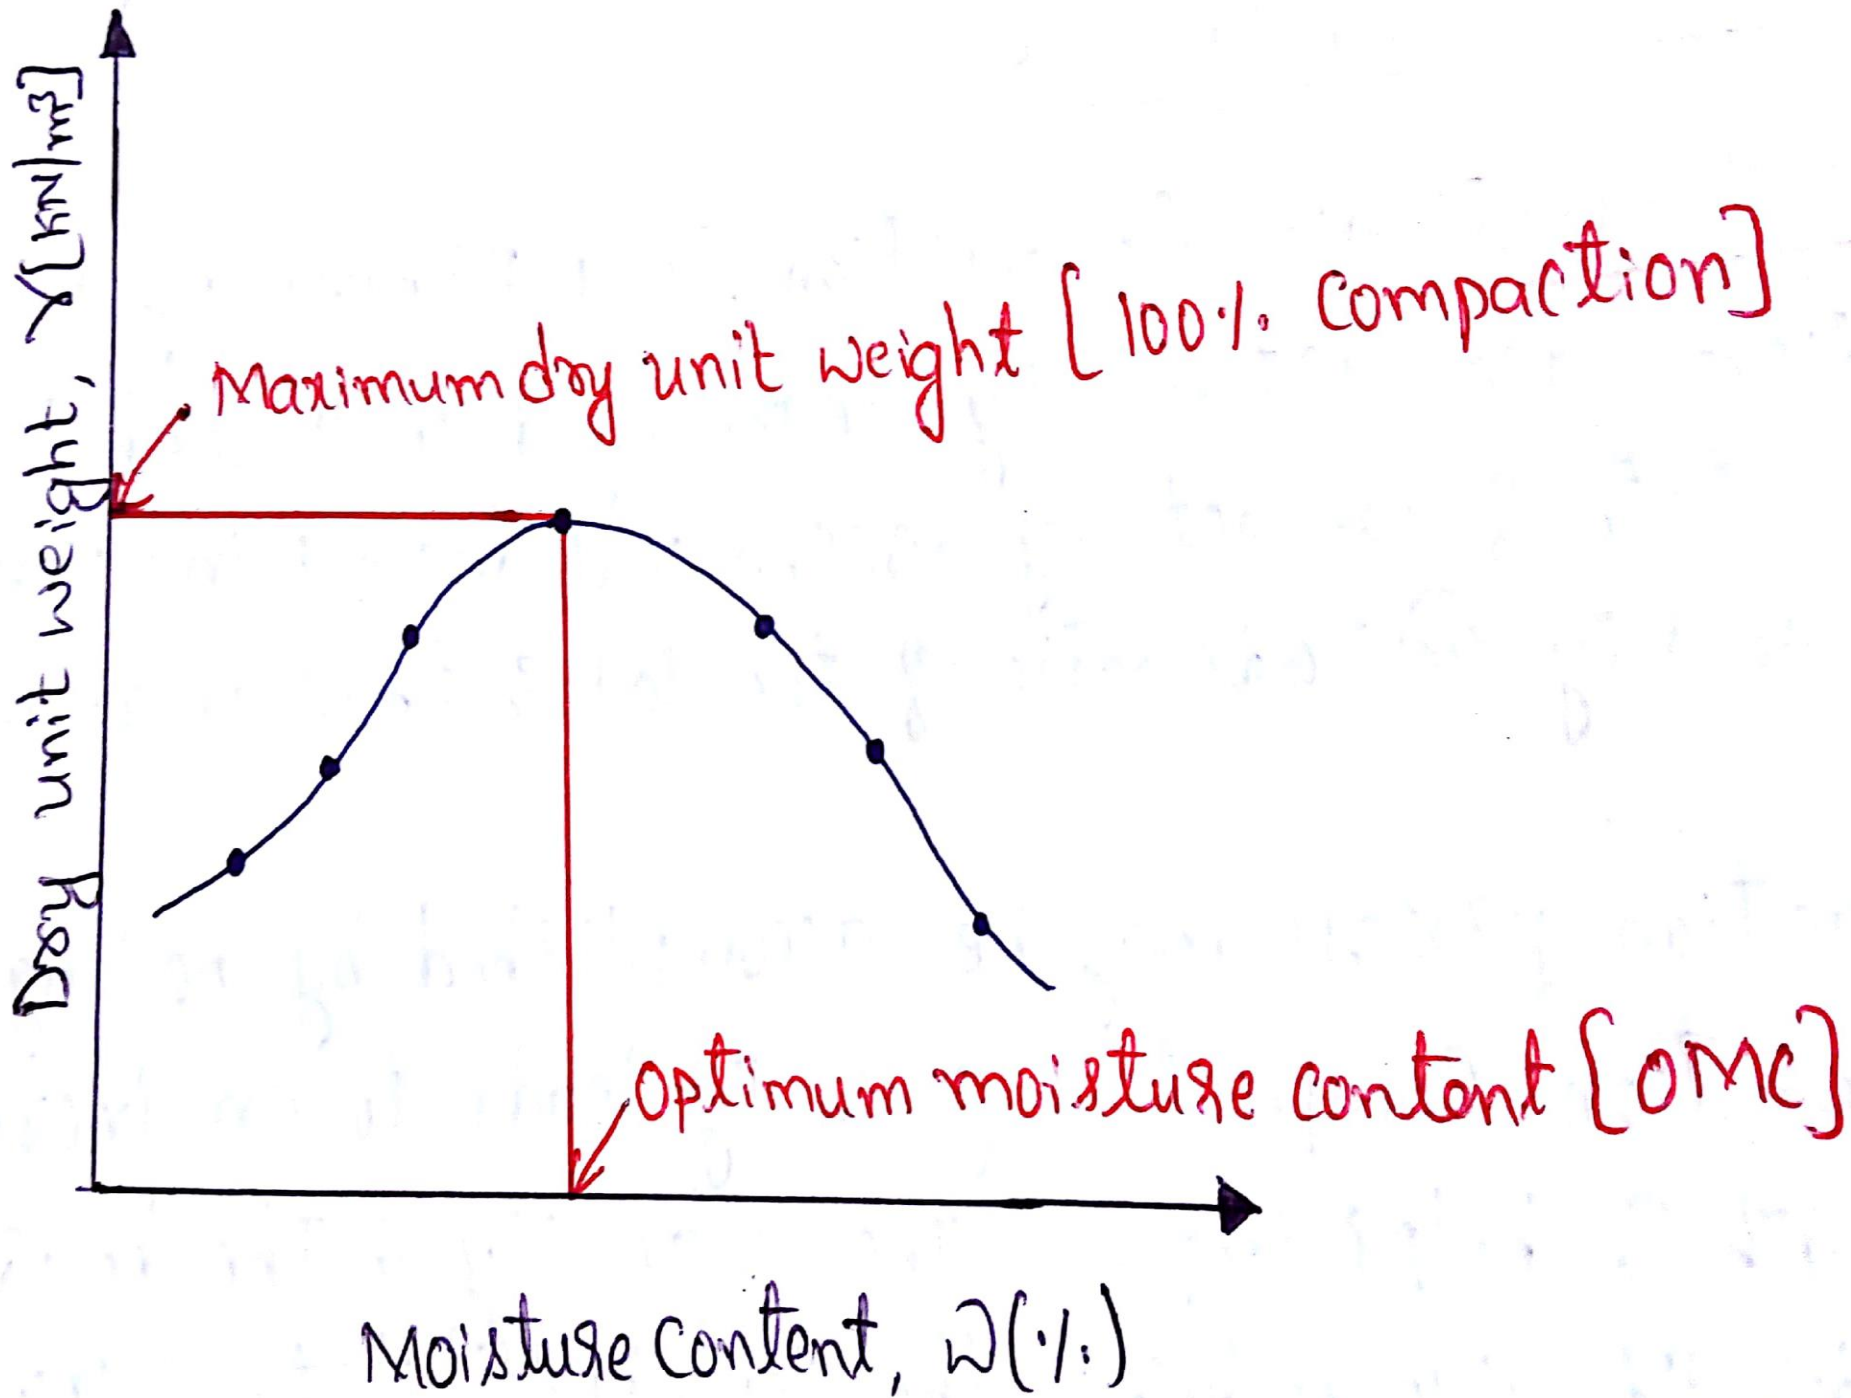 Dry unit weight, γ[kN/m³]
Maximum dry unit weight [100% compaction]
optimum moisture content [OMC]
Moisture content, ω(%)